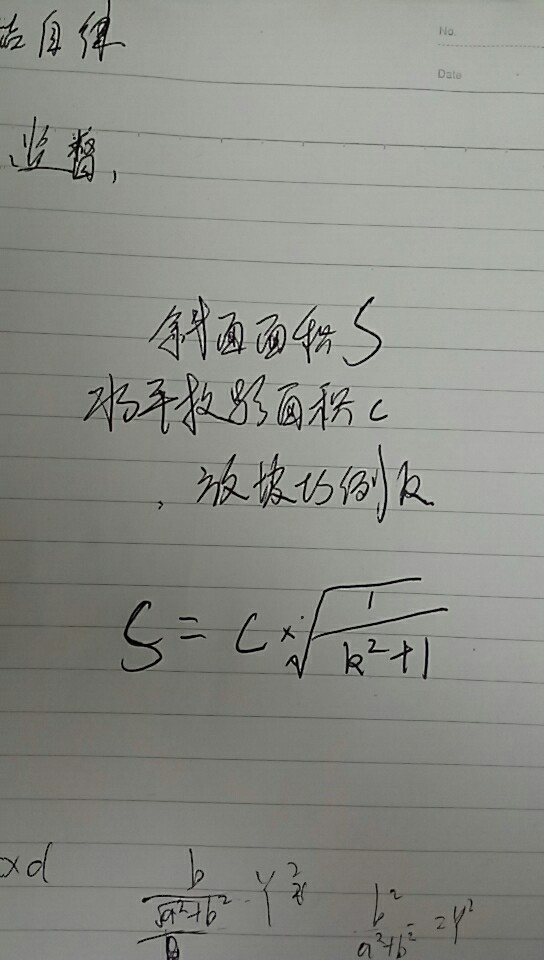 自律
No.
Date
监督,
斜面面积S
水平投影面积c
, 放坡比例k
S = C × √(1/(k²+1))
xd
b/√a²+b²
b²/a²+b² = Y²